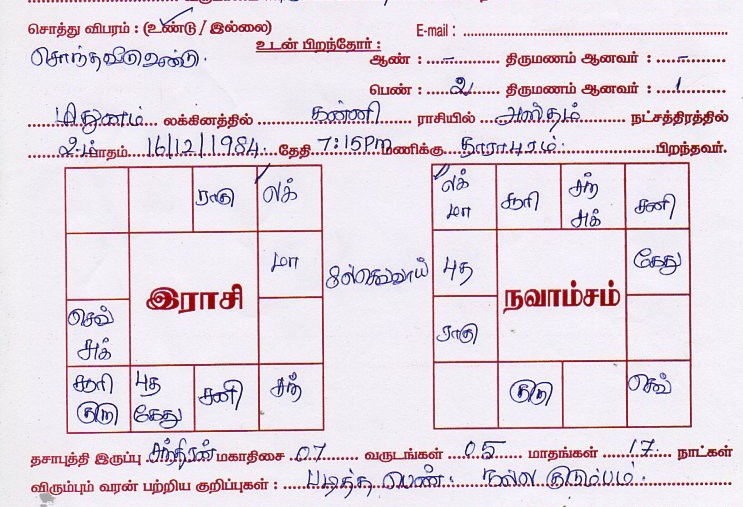 சொத்து விபரம் : (உண்டு / இல்லை) E-mail :
சொந்தவீடு உண்டு. உடன் பிறந்தோர் :
ஆண் : - திருமணம் ஆனவர் : -
பெண் : 2 திருமணம் ஆனவர் : 1
மிதுனம் லக்கினத்தில் கன்னி ராசியில் அஸ்தம் நட்சத்திரத்தில்
2ம் பாதம் 16/12/1984 தேதி 7:15PM மணிக்கு தாராபுரம் பிறந்தவர்.
ராகு லக்
லக் மா சூரி சுக் சனி
மா
செவ்வாய்
புத கேது
இராசி நவாம்சம்
செவ் சுக்
ராகு
சூரி குரு புத கேது சனி சந்
குரு செவ்
தசாபுத்தி இருப்பு சந்திரன் மகாதிசை 07 வருடங்கள் 05 மாதங்கள் 17 நாட்கள்
விரும்பும் வரன் பற்றிய குறிப்புகள் : படித்த பெண். நல்ல குடும்பம்.